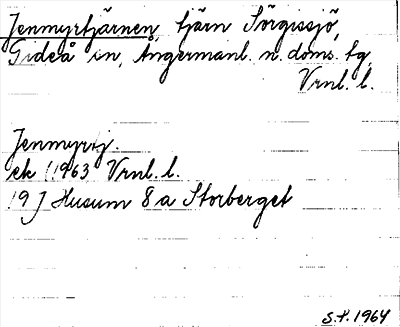 Jenmyrtjärnen, tjärn Sörgissjö,
Gideå sn, Ångermanl. n. doms. tg,
Vrnl. l.
Jenmyrtj.
ek 1963 Vrnl. l.
19 J Husum 8 a Storberget
S.H. 1964